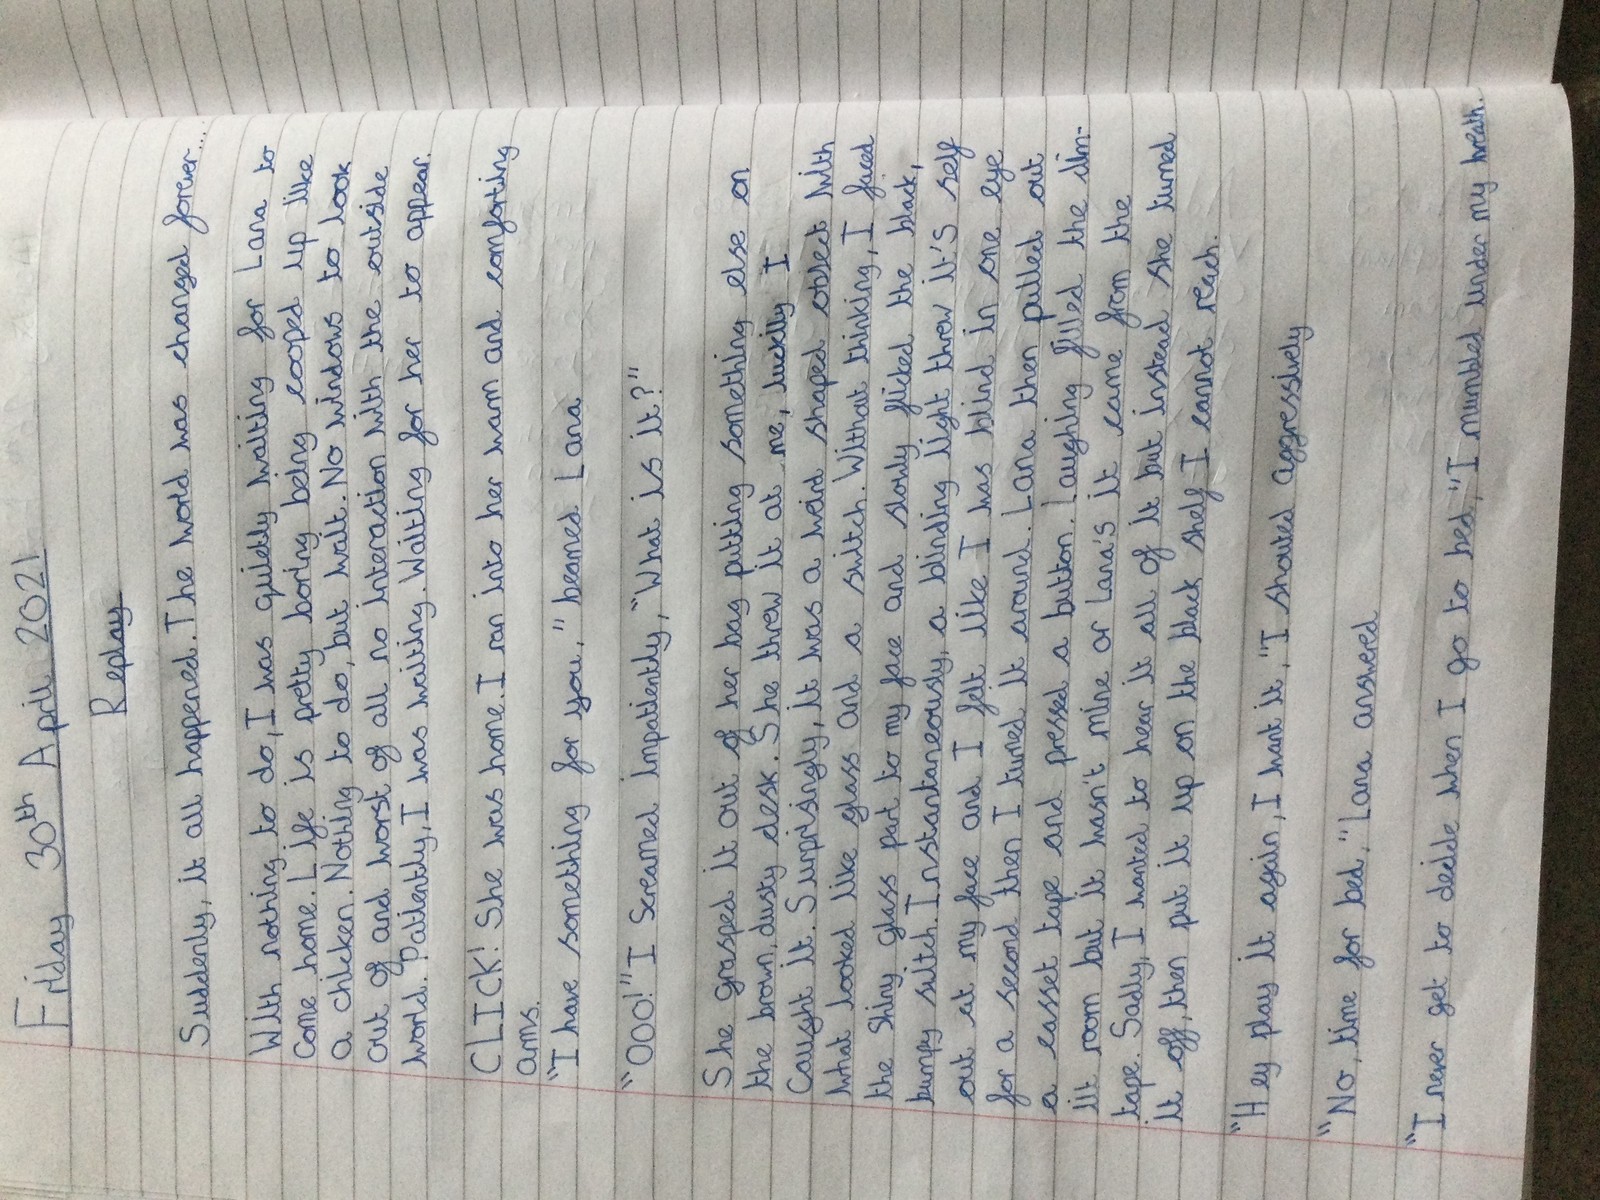 Friday 30th April 2021
Replay
Suddenly, it all happened. The world was changed forever...
With nothing to do, I was quietly waiting for Lana to
come home. Life is pretty boring being cooped up like
a chicken. Nothing to do, but wait. No windows to look
out of and worst of all no interaction with the outside
world. Patiently, I was waiting. Waiting for her to appear.
CLICK! She was home. I ran into her warm and comforting
arms.
"I have something for you," beamed Lana
"OOO!" I screamed impatiently, "What is it?"
She grasped it out of her bag putting something else on
the brown, dusty desk. She threw it at me, luckily I
caught it. Surprisingly, it was a weird shaped object with
what looked like glass and a switch. Without thinking, I faced
the shiny glass part to my face and slowly flicked the black,
bumpy switch. Instantaneously, a blinding light threw it's self
out at my face and I felt like I was blind in one eye
for a second then I turned it around. Lana then pulled out
a casset tape and pressed a button. Laughing filled the dim-
lit room but it wasn't mine or Lana's it came from the
tape. Sadly, I wanted to hear it all of it but instead she turned
it off, then put it up on the black shelf I cannot reach.
"Hey play it again, I want it," I shouted aggressively
"No, time for bed," Lana answered
"I never get to decide when I go to bed," I mumbled under my breath.